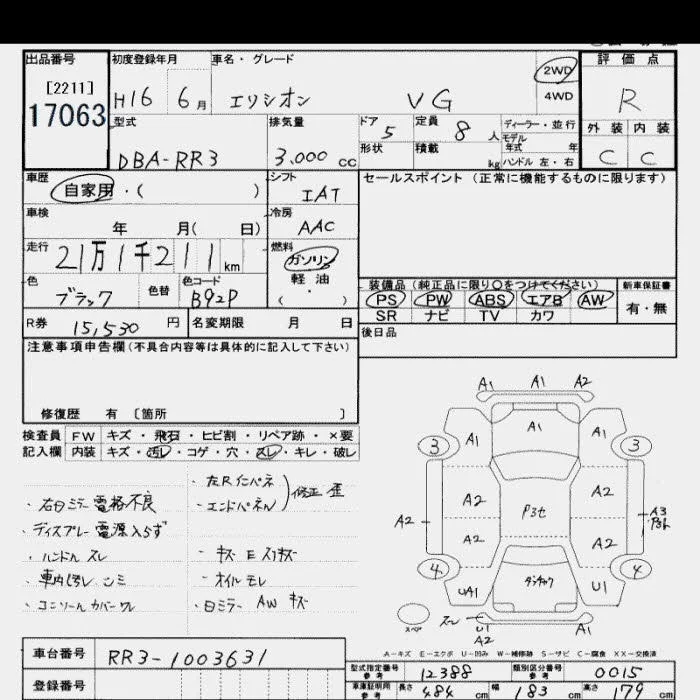 出品番号 初度登録年月 車名・グレード 評価点
[2211]
17063
H16 6月 エリシオン VG 2WD
4WD
R
型式 排気量 ドア 定員 ディーラー・並行
モデル
年式 年
外装 内装
DBA-RR3 3.000 cc 5 8人
形状 積載 kg ハンドル 左・右
C C
車歴 シフト セールスポイント (正常に機能するものに限ります)
自家用・( ) IAT
車検 冷房
年 月( 日) AAC
走行 燃料
21万1千211km ガソリン
軽油
・( )
色 色替 色コード
ブラック B92P
装備品 (純正品に限り〇をつけてください) 新車保証書
PS PW ABS エアB AW 有・無
SR ナビ TV カワ
R券 15,530 円 名変期限 月 日
後日品
注意事項申告欄(不具合内容等は具体的に記入して下さい)
修復歴 有 〔箇所 〕
検査員 FW キズ・飛石・ヒビ割・リペア跡・×要
記入欄 内装 キズ・汚レ・コゲ・穴・スレ・キレ・破レ
・右ミラー電格不良
・ディスプレー電源入らず
・ハンドル スレ
・車内汚レ シミ
・コンソールカバーワレ
・左Rインパネ
・エンドパネル
修正 歪
・キズ E スリキズ
・オイルモレ
・AW キズ
A1 A1 A2
3 A1 A1 A1 3
A2 A2
A2 P3セ A3
A2 A2
4 4
UA1 U1
スペア スレ U1 A1
A2
A-キズ E-エクボ U-凹み W-補修跡 S-サビ C-腐食 XX-交換済
車台番号 RR3-1003631
登録番号
型式指定番号 参考 12388 類別区分番号 参考 0015
車庫証明用 参考 長さ 484 cm 幅 183 cm 高さ 179 cm